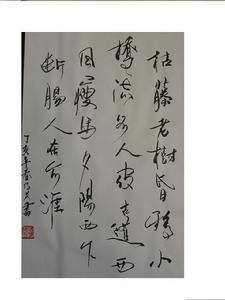 枯藤老樹昏鴉小
橋流水人家古道西
風瘦馬夕陽西下
斷腸人在天涯
丁亥年春書